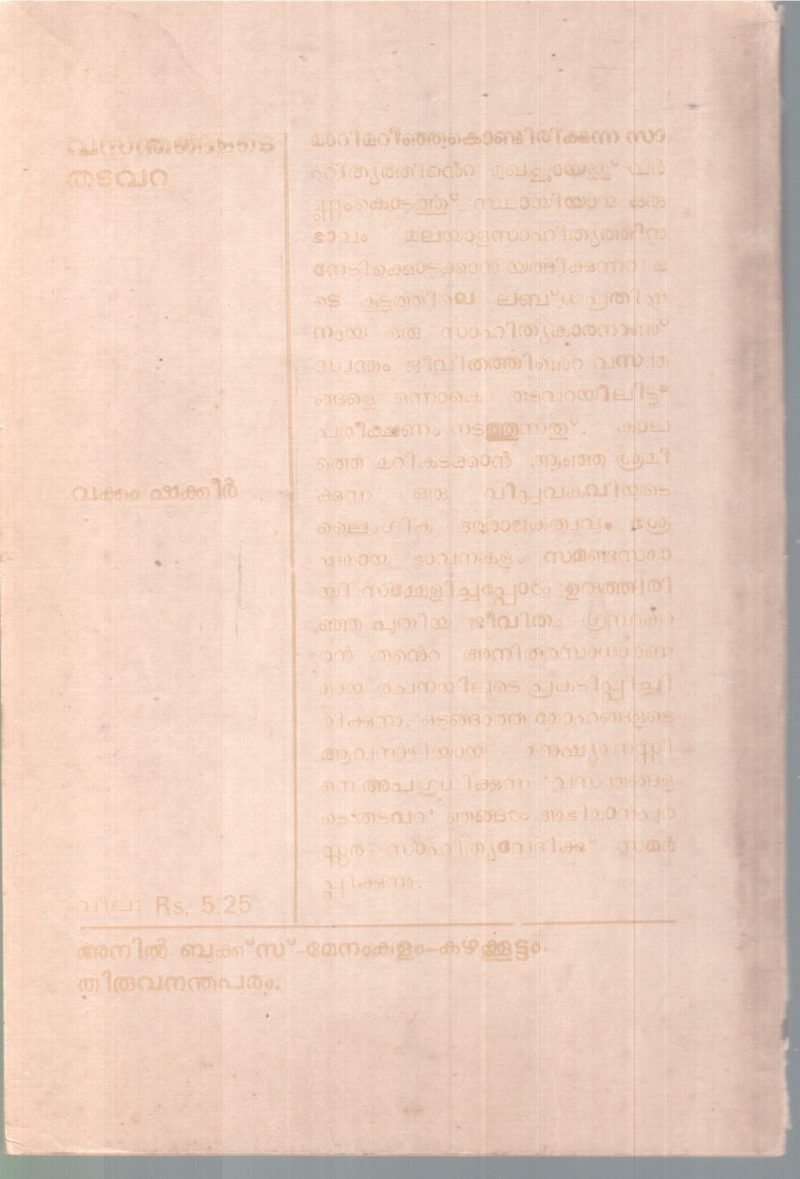 വസന്തങ്ങളുടെ
തടവറ
വക്കം ഷക്കീർ
വില: Rs. 5.25
മാറിമറിഞ്ഞുകൊണ്ടിരിക്കുന്ന സാ
ഹിത്യത്തിൻെറ മുഖച്ഛായയ്ക്ക് വർ
ണ്ണംകൊടുത്ത് സ്ഥായിയായ ഒരു
ഭാവം മലയാളസാഹിത്യത്തിന
നേടിക്കൊടുക്കാൻ യത്നിക്കുന്നവരു
ടെ കൂട്ടത്തിലെ ലബ്ധപ്രതിഷ്ഠ
നായ ഒരു സാഹിത്യകാരനാണ്
സ്വന്തം ജീവിതത്തിൻെറ വസന്ത
ങ്ങളെ ഒന്നാകെ തടവറയിലിട്ട്
പരീക്ഷണം നടത്തുന്നത്. കാല
ത്തെ മറികടക്കാൻ ആഞ്ഞു ശ്രമി
ക്കുന്ന ഒരു വിപ്ലവകവിയുടെ
ലൈംഗിക അരാജകത്വവും ശ്രേ
ഷ്ഠമായ ഭാവനകളും സമഞ്ജസമാ
യി സമ്മേളിച്ചപ്പോൾ ഉരുത്തിരി
ഞ്ഞ പുതിയ ജീവിതം ഗ്രന്ഥകാ
രൻ തൻെറ അനിതരസാധാരണ
മായ രചനയിലൂടെ പ്രകടിപ്പിച്ചി
രിക്കുന്നു. ഒടുങ്ങാത്ത മോഹങ്ങളുടെ
ആവനാഴിയായ മനുഷ്യമനസ്സി
നെ അപഗ്രഥിക്കുന്ന 'വസന്തങ്ങളു
ടെ തടവറ' ഞങ്ങൾ അഭിമാനപുര
സ്സരം സാഹിത്യവേദിക്കു് സമർ
പ്പിക്കുന്നു.
അനിൽ ബുക്ക്സ്-മേനംകുളം-കഴക്കൂട്ടം.
തിരുവനന്തപുരം.